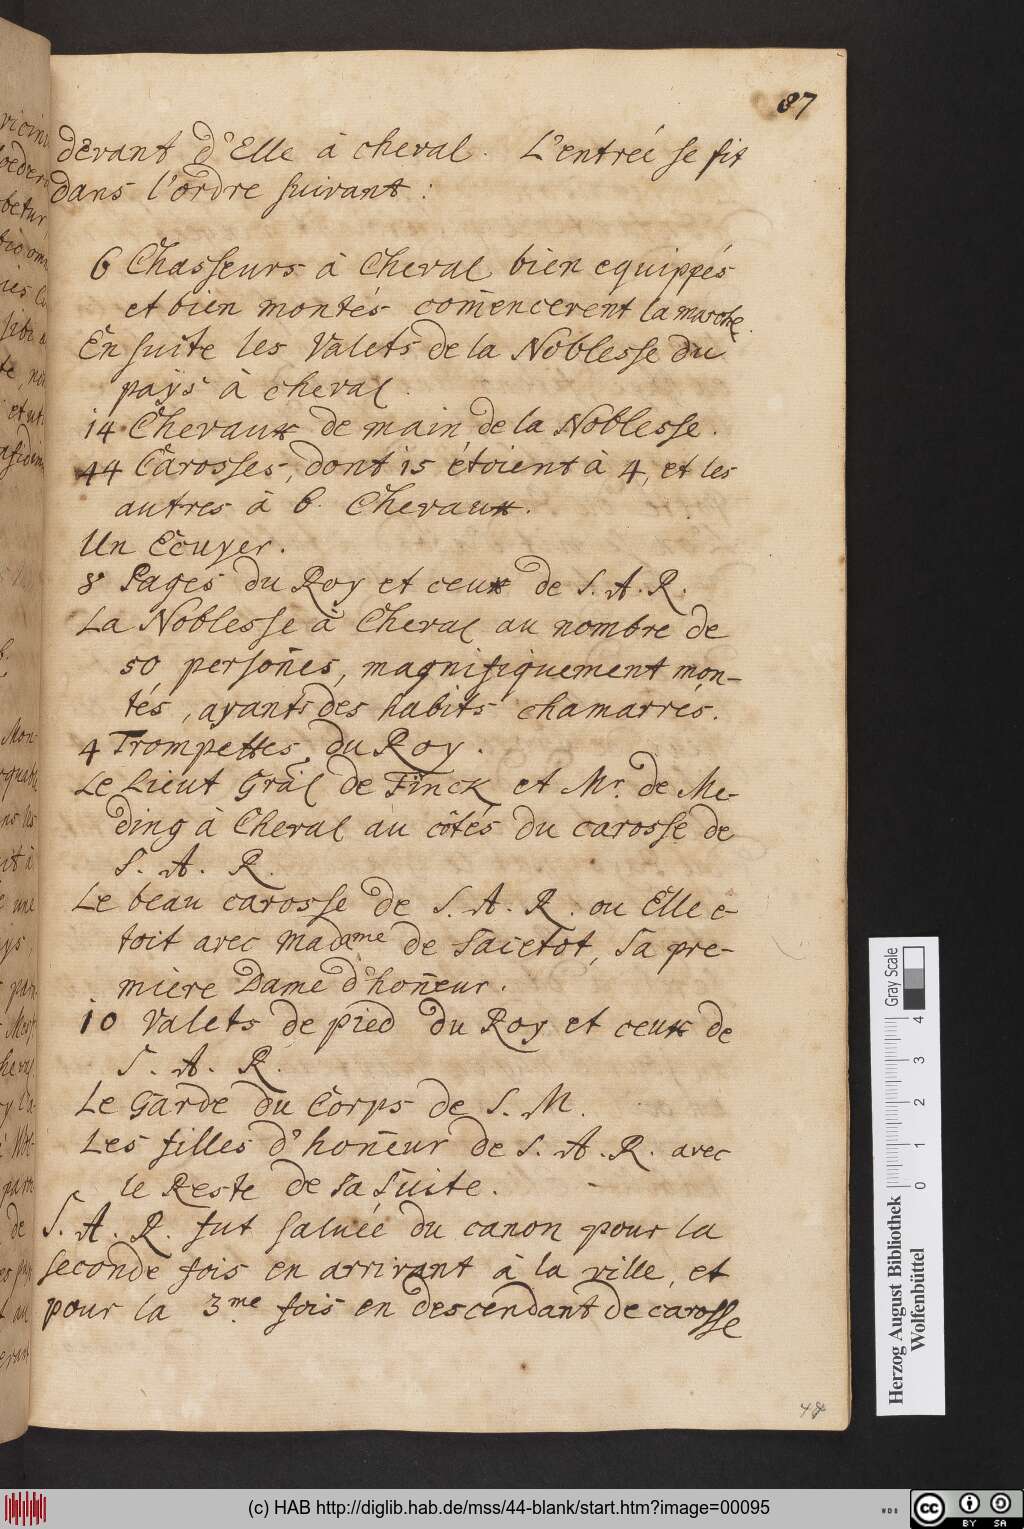 87
devant d'Elle à cheval. L'entrée se fit
dans l'ordre suivant:
6 Chasseurs à Cheval bien equippés
et bien montés com̄encerent la marche.
En suite les Valets de la Noblesse du
païs à cheval.
14 Chevaux de main de la Noblesse.
44 Carosses, dont 15 étoient à 4, et les
autres à 6. Chevaux.
Un Ecuyer.
8 Pages du Roy et ceux de S. A. R.
La Noblesse à Cheval au nombre de
50 persoñes, magnifiquement mon-
tés, ayants des habits chamarrés.
4 Trompettes du Roy.
Le Lieut Gräl de Finck et Mr. de Me-
ding à Cheval au côtés du carosse de
S. A. R.
Le beau carosse de S. A. R. ou Elle e-
toit avec Madame de Sacetot, Sa pre-
miere Dame d'hoñeur.
10 Valets de pied du Roy et ceux de
S. A. R.
Le Garde du Corps de S. M.
Les filles d'hoñeur de S. A. R. avec
le Reste de Sa Suite.
S. A. R. fut saluée du canon pour la
seconde fois en arrivant à la ville, et
pour la 3.me fois en descendant de carosse
48
Gray Scale
0 1 2 3 4
Herzog August Bibliothek
Wolfenbüttel
(c) HAB http://diglib.hab.de/mss/44-blank/start.htm?image=00095
WDB
cc
BY SA